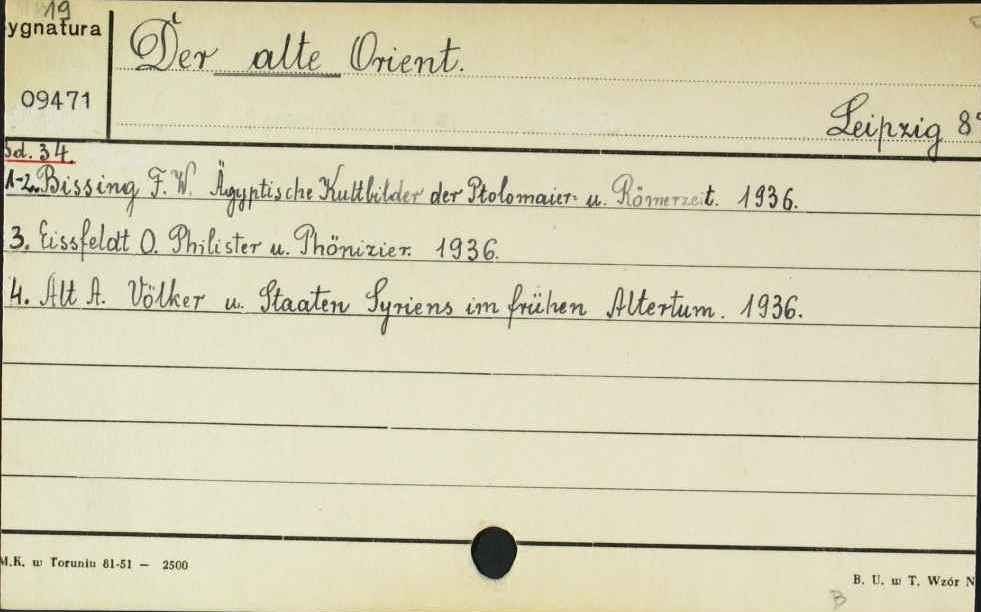 19
ygnatura
Der alte Orient.
09471
Leipzig 8°
Bd. 34.
1-2. Bissing F. W. Ägyptische Kultbilder der Ptolomaier- u. Römerzeit. 1936.
3. Eissfeldt O. Philister u. Phönizier. 1936.
4. Alt A. Völker u. Staaten Syriens im frühen Altertum. 1936.
M.K. w Toruniu 81-51 — 2500
B. U. w T. Wzór N
B